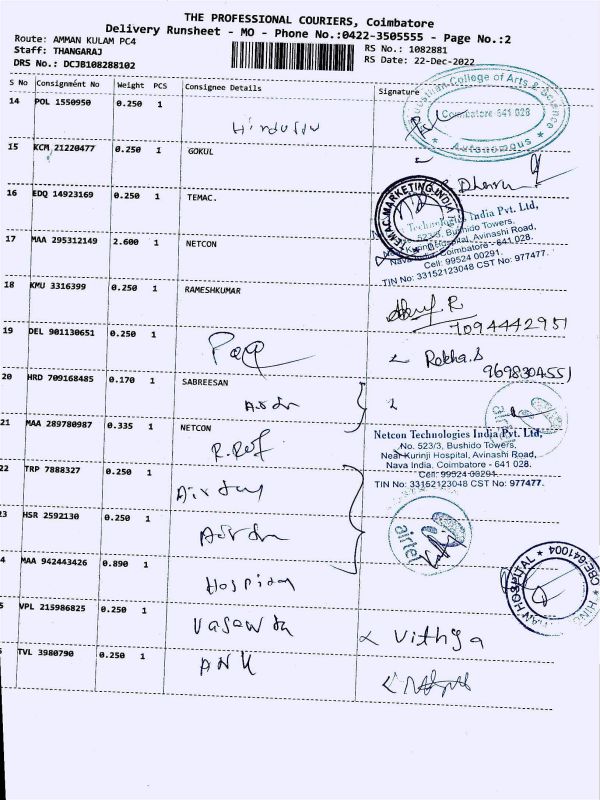 THE PROFESSIONAL COURIERS, Coimbatore
Delivery Runsheet - MO - Phone No.:0422-3505555 - Page No.:2
Route: AMMAN KULAM PC4
Staff: THANGARAJ
DRS No.: DCJB108288102
RS No.: 1082881
RS Date: 22-Dec-2022
S No Consignment No Weight PCS Consignee Details Signature
14 POL 1550950 0.250 1
College of Arts & Science
Coimbatore 641 028
Autonomous
15 KCM 21220477 0.250 1 GOKUL
16 EDQ 14923169 0.250 1 TEMAC.
TEMAC MARKETING INDIA
Technologies India Pvt. Ltd,
523/3, Bushido Towers,
Kurinji Hospital, Avinashi Road,
Nava India, Coimbatore - 641 028.
Cell: 99524 00291.
TIN No: 33152123048 CST No: 977477.
17 MAA 295312149 2.600 1 NETCON
18 KMU 3316399 0.250 1 RAMESHKUMAR
7094442951
19 DEL 901130651 0.250 1
Rekha.S
9698304551
20 HRD 709168485 0.170 1 SABREESAN
21 MAA 289780987 0.335 1 NETCON
Netcon Technologies India Pvt. Ltd,
No. 523/3, Bushido Towers,
Near Kurinji Hospital, Avinashi Road,
Nava India, Coimbatore - 641 028.
Cell: 99524 00291.
TIN No: 33152123048 CST No: 977477.
22 TRP 7888327 0.250 1
23 HSR 2592130 0.250 1
airtel
4 MAA 942443426 0.890 1
Hospital
HOSPITAL
CBE-641004
5 VPL 215986825 0.250 1 Vasanta
Vithya
TVL 3980790 0.250 1